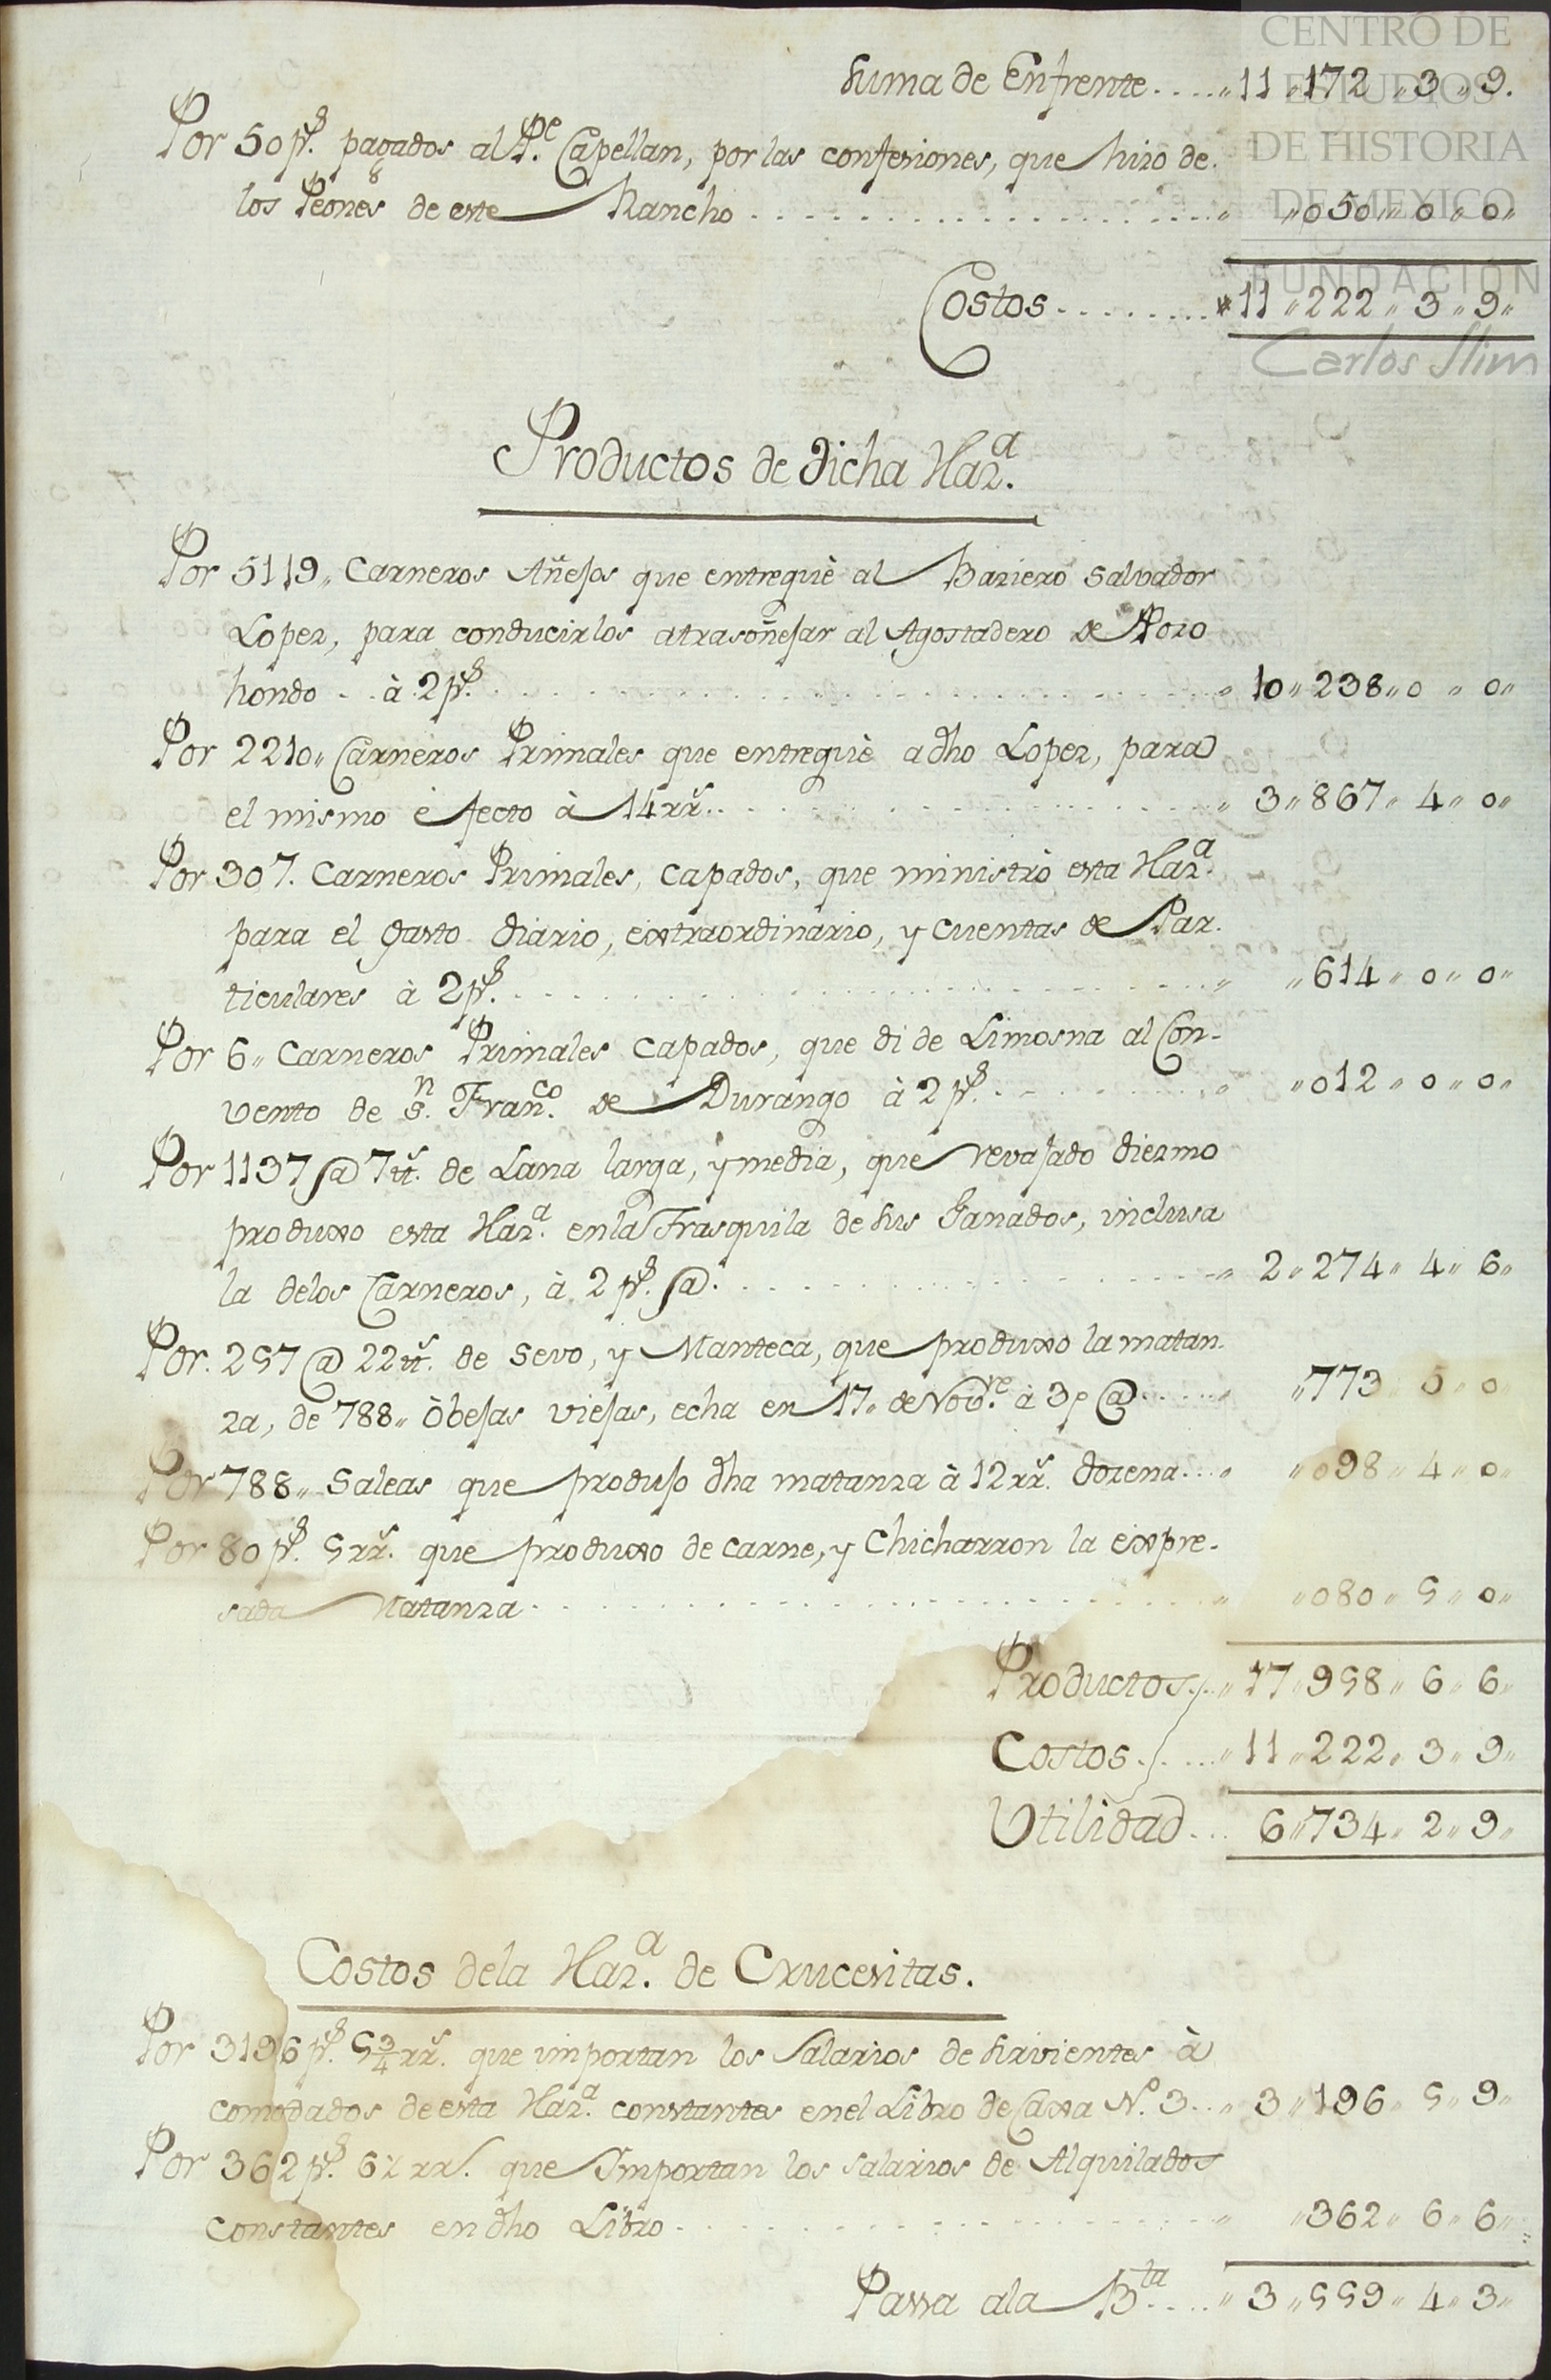 CENTRO DE
ESTUDIOS
DE HISTORIA
DE MEXICO
FUNDACIÓN
Carlos Slim
Suma de Enfrente....„11„172„3„9.
Por 50 p.s pagados al P.e Capellan, por las confesiones, que hizo de
los Peones de este Rancho.......„ „050„0„0„
Costos........„11„222„3„9„
Productos de dicha Haz.a
Por 5119„ Carneros Añejos que entreguè al Baziero Salvador
Lopez, para conducirlos atrasoñejar al Agostadero de Pozo
hondo.. à 2 p.s.......„10„238„0„0„
Por 2210„ Carneros Primales que entreguè a dho Lopez, para
el mismo efecto à 14 rr.s.......„3„867„4„0„
Por 307. Carneros Primales, capados, que ministrò esta Haz.a
para el gasto diario, extraordinario, y cuentas de Par-
ticulares à 2 p.s.......„ „614„0„0„
Por 6„ Carneros Primales capados, que di de Limosna al Con-
vento de S.n Fran.co de Durango à 2 p.s.......„ „012„0„0„
Por 1137 @ 7 tt.s de Lana larga, y media, que revajado diezmo
produxo esta Haz.a en la Trasquila de sus Ganados, inclusa
la delos Carneros, à 2 p.s @.......„2„274„4„6„
Por. 257 @ 22 tt.s de Sevo, y Manteca, que produxo la matan-
za, de 788„ òbejas viejas, echa en 17„ de Nov.re à 3 p @......„ „773„5„0„
Por 788„ Saleas que produjo dha matanza à 12 rr.s dozena...„ „098„4„0„
Por 80 p.s 5 rr.s que produxo de carne, y Chicharron la expre-
sada Matanza.......„ „080„5„0„
Productos...„17„958„6„6„
Costos.....„11„222„3„9„
Utilidad... 6„734„2„9„
Costos dela Haz.a de Crucesitas.
Por 3196 p.s 5 3/4 rr.s que importan los Salarios de Sirvientes à
comodados de esta Haz.a constantes en el Libro de Caxa N.o 3..„3„196„5„9„
Por 362 p.s 6½ rr.s que Importan los salarios de Alquilados
constantes en dho Libro.......„ „362„6„6„
Passa ala B.ta....„3„559„4„3„